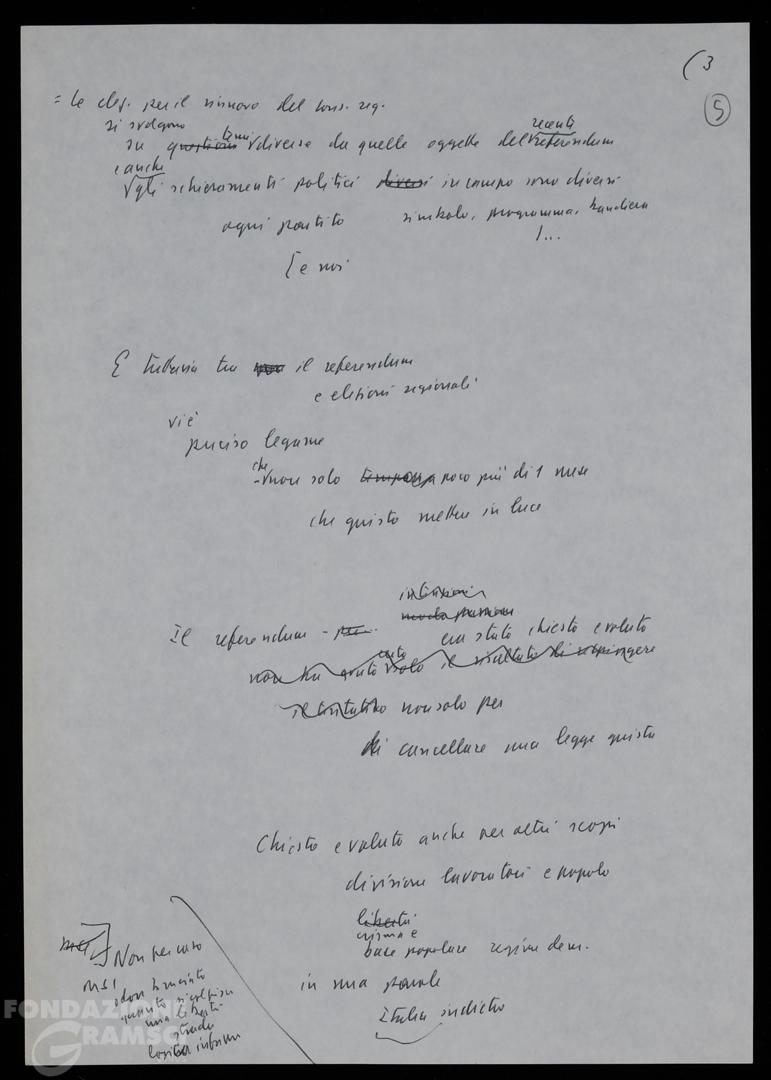 (3
5
= le elez. per il rinnovo del cons. reg.
si svolgono
su questioni temi diverse da quelle oggetto del recente referendum
e anche
gli schieramenti politici diversi in campo sono diversi
ogni partito simbolo, programma, bandiera
!...
[e noi
E tuttavia tra il referendum
e elezioni regionali
v'è
preciso legame
- che non solo poco più di 1 mese
che questo mettere in luce
Il referendum - era stato chiesto e voluto
non ha avuto certo solo il risultato di respingere
il tentativo non solo per
di cancellare una legge giusta
Chiesto e voluto anche per altri scopi
divisione lavoratori e popolo
libertà
base popolare regime dem.
in una parola
Italia indietro
Non per caso
MSI
quanto
una libertà
strada
FONDAZIONE
GRAMSCI